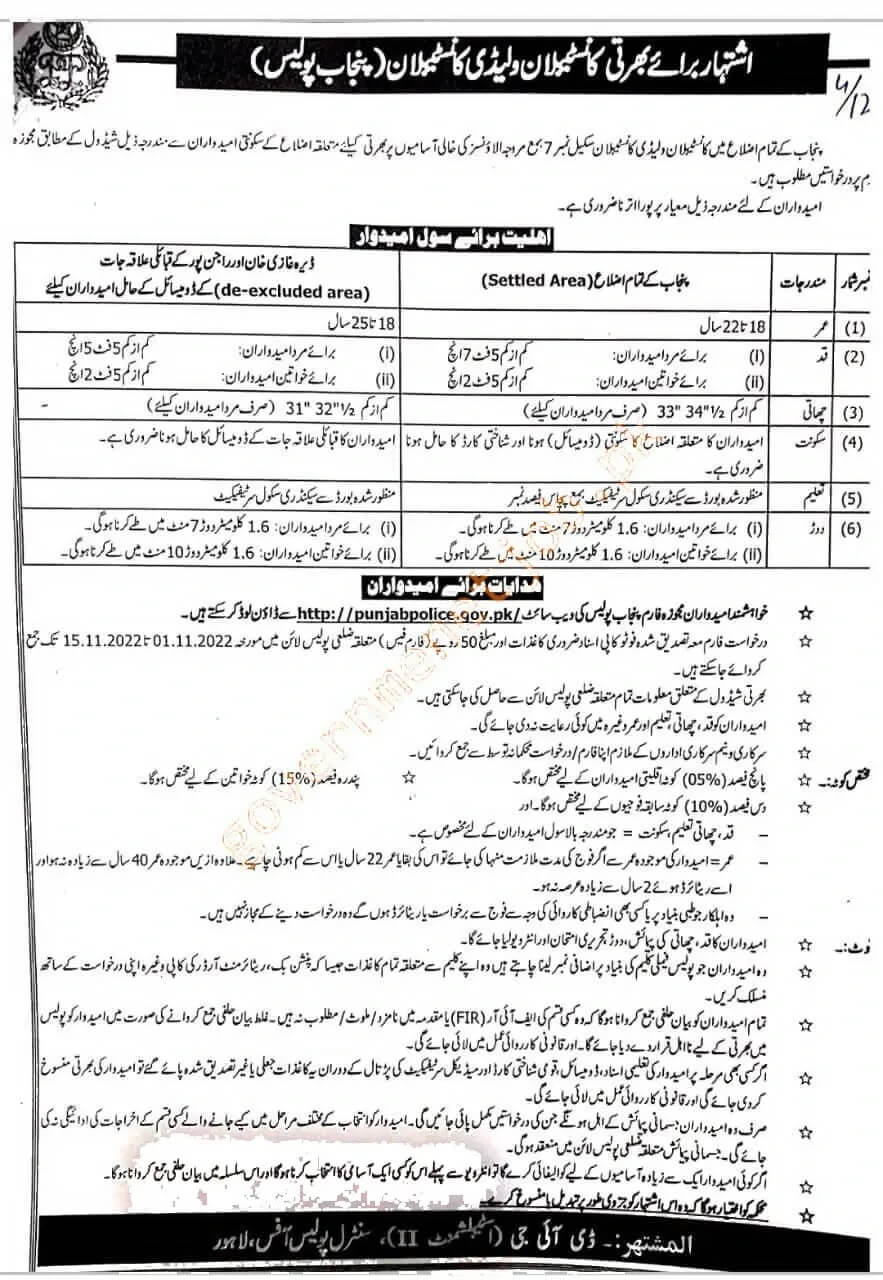 اشتہار برائے بھرتی کانسٹیبلان و لیڈی کانسٹیبلان (پنجاب پولیس)
4/12
پنجاب کے تمام اضلاع میں کانسٹیبلان و لیڈی کانسٹیبلان سکیل نمبر 7 بمع مروجہ الاؤنسز کی خالی آسامیوں پر بھرتی کیلئے متعلقہ اضلاع کے سکونتی امیدواران سے مندرجہ ذیل شیڈول کے مطابق مجوزہ
پر درخواستیں مطلوب ہیں۔
امیدواران کے لئے مندرجہ ذیل معیار پر پورا اترنا ضروری ہے۔
اھلیت برائے سول امیدوار
نمبر شمار مندرجات پنجاب کے تمام اضلاع (Settled Area) ڈیرہ غازی خان اور راجن پور کے قبائلی علاقہ جات
(de-excluded area) کے ڈومیسائل کے حامل امیدواران کیلئے
(1) عمر 18 تا 22 سال 18 تا 25 سال
(2) قد (i) برائے مرد امیدواران: کم از کم 5 فٹ 7 انچ (i) برائے مرد امیدواران: کم از کم 5 فٹ 5 انچ
(ii) برائے خواتین امیدواران: کم از کم 5 فٹ 2 انچ (ii) برائے خواتین امیدواران: کم از کم 5 فٹ 2 انچ
(3) چھاتی کم از کم 33" 34½" (صرف مرد امیدواران کیلئے) کم از کم 31" 32½" (صرف مرد امیدواران کیلئے) -
(4) سکونت امیدواران کا متعلقہ اضلاع کا سکونتی (ڈومیسائل) ہونا اور شناختی کارڈ کا حامل ہونا امیدواران کا قبائلی علاقہ جات کے ڈومیسائل کا حامل ہونا ضروری ہے۔
ضروری ہے۔
(5) تعلیم منظور شدہ بورڈ سے سیکنڈری سکول سرٹیفکیٹ بمع پچاس فیصد نمبر منظور شدہ بورڈ سے سیکنڈری سکول سرٹیفکیٹ
(6) دوڑ (i) برائے مرد امیدواران: 1.6 کلومیٹر دوڑ 7 منٹ میں طے کرنا ہوگی۔ (i) برائے مرد امیدواران: 1.6 کلومیٹر دوڑ 7 منٹ میں طے کرنا ہوگی۔
(ii) برائے خواتین امیدواران: 1.6 کلومیٹر دوڑ 10 منٹ میں طے کرنا ہوگی۔ (ii) برائے خواتین امیدواران: 1.6 کلومیٹر دوڑ 10 منٹ میں طے کرنا ہوگی۔
ھدایات برائے امیدواران
☆ خواہشمند امیدواران مجوزہ فارم پنجاب پولیس کی ویب سائٹ http://punjabpolice.gov.pk/ سے ڈاؤن لوڈ کر سکتے ہیں۔
☆ درخواست فارم معہ تصدیق شدہ فوٹو کاپی اسناد ضروری کاغذات اور مبلغ 50 روپے (فارم فیس) متعلقہ ضلعی پولیس لائن میں مورخہ 01.11.2022 تا 15.11.2022 تک جمع
کروائے جا سکتے ہیں۔
☆ بھرتی شیڈول کے متعلق معلومات تمام متعلقہ ضلعی پولیس لائن سے حاصل کی جا سکتی ہیں۔
☆ امیدواران کو قد، چھاتی، تعلیم اور عمر وغیرہ میں کوئی رعایت نہ دی جائے گی۔
☆ سرکاری و نیم سرکاری اداروں کے ملازم اپنا فارم/درخواست محکمانہ توسط سے جمع کروائیں۔
مختص کوٹہ:۔ ☆ پانچ فیصد (05%) کوٹہ اقلیتی امیدواران کے لیے مختص ہوگا۔ ☆ پندرہ فیصد (15%) کوٹہ خواتین کے لیے مختص ہوگا۔
☆ دس فیصد (10%) کوٹہ سابقہ فوجیوں کے لیے مختص ہوگا۔ اور
- قد، چھاتی، تعلیم، سکونت = جو مندرجہ بالا سول امیدواران کے لئے مخصوص ہے۔
- عمر = امیدوار کی موجودہ عمر سے اگر فوج کی مدت ملازمت منہا کی جائے تو اس کی بقایا عمر 22 سال یا اس سے کم ہونی چاہیے۔ علاوہ ازیں موجودہ عمر 40 سال سے زیادہ نہ ہو اور
اسے ریٹائرڈ ہوئے 2 سال سے زیادہ عرصہ نہ ہو۔
- وہ اہلکار جو طبی بنیاد پر یا کسی بھی انضباطی کاروائی کی وجہ سے فوج سے برخواست یا ریٹائرڈ ہوں گے وہ درخواست دینے کے مجاز نہیں ہیں۔
نوٹ:۔ ☆ امیدواران کا قد، چھاتی کی پیمائش، دوڑ، تحریری امتحان اور انٹرویو لیا جائے گا۔
☆ وہ امیدواران جو پولیس فیملی کلیم کی بنیاد پر اضافی نمبر لینا چاہتے ہیں وہ اپنے کلیم سے متعلقہ تمام کاغذات جیسا کہ پنشن بک، ریٹائرمنٹ آرڈر کی کاپی وغیرہ اپنی درخواست کے ساتھ
منسلک کریں۔
☆ تمام امیدواران کو بیان حلفی جمع کروانا ہوگا کہ وہ کسی قسم کی ایف آئی آر (FIR) یا مقدمہ میں نامزد/ملوث/مطلوب نہ ہیں۔ غلط بیان حلفی جمع کروانے کی صورت میں امیدوار کو پولیس
میں بھرتی کے لیے نا اہل قرار دے دیا جائے گا۔ اور قانونی کارروائی عمل میں لائی جائے گی۔
☆ اگر کسی بھی مرحلہ پر امیدوار کی تعلیمی اسناد، ڈومیسائل، قومی شناختی کارڈ اور میڈیکل سرٹیفکیٹ کی پڑتال کے دوران یہ کاغذات جعلی یا غیر تصدیق شدہ پائے گئے تو امیدوار کی بھرتی منسوخ
کر دی جائے گی اور قانونی کارروائی عمل میں لائی جائے گی۔
☆ صرف وہ امیدواران جسمانی پیمائش کے اہل ہونگے جن کی درخواستیں مکمل پائی جائیں گی۔ امیدوار کو انتخاب کے مختلف مراحل میں کیے جانے والے کسی قسم کے اخراجات کی ادائیگی نہ کی
جائے گی۔ جسمانی پیمائش متعلقہ ضلعی پولیس لائن میں منعقد ہوگی۔
☆ اگر کوئی امیدوار ایک سے زیادہ آسامیوں کے لیے کوالیفائی کرے گا تو انٹرویو سے پہلے اس کو کسی ایک آسامی کا انتخاب کرنا ہوگا اور اس سلسلہ میں بیان حلفی جمع کروانا ہوگا۔
☆ محکمہ کو اختیار ہوگا کہ وہ اس اشتہار کو جزوی طور پر تبدیل یا منسوخ کرے۔
المشتہر:۔ ڈی آئی جی (اسٹیبلشمنٹ II)، سنٹرل پولیس آفس، لاہور